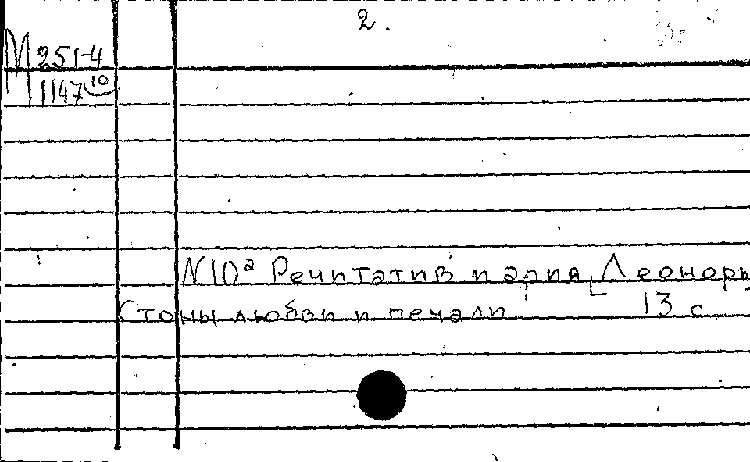 2.
М 251-4
1147 10
N 10а Речитатив и ария Леоноры
Стоны любви и печали 13 с